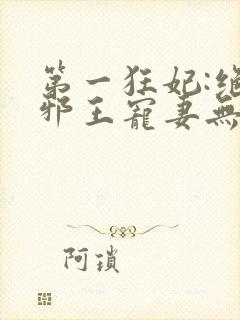 第一狂妃:絕
邪王寵妻無
阿瑣